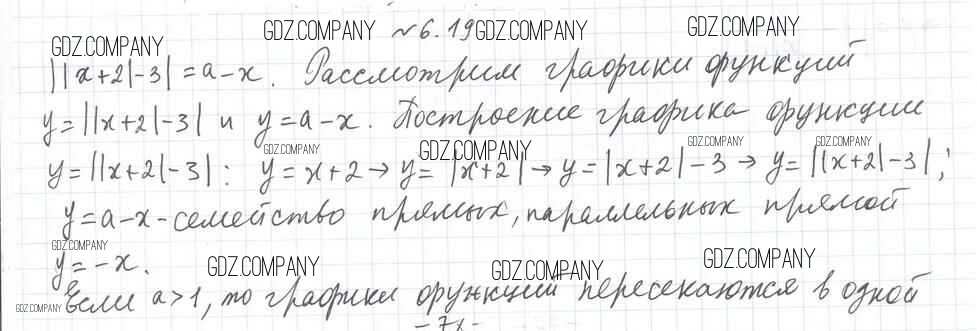 №6.19
||x+2|-3|=a-x. Рассмотрим графики функций
y=||x+2|-3| и y=a-x. Построение графика функции
y=||x+2|-3|: y=x+2→y=|x+2|→y=|x+2|-3→y=||x+2|-3|;
y=a-x-семейство прямых, параллельных прямой
y=-x.
Если a>1, то графики функций пересекаются в одной
GDZ.COMPANY
GDZ.COMPANY
GDZ.COMPANY
GDZ.COMPANY
GDZ.COMPANY
GDZ.COMPANY
GDZ.COMPANY
GDZ.COMPANY
GDZ.COMPANY
GDZ.COMPANY
GDZ.COMPANY
GDZ.COMPANY
GDZ.COMPANY